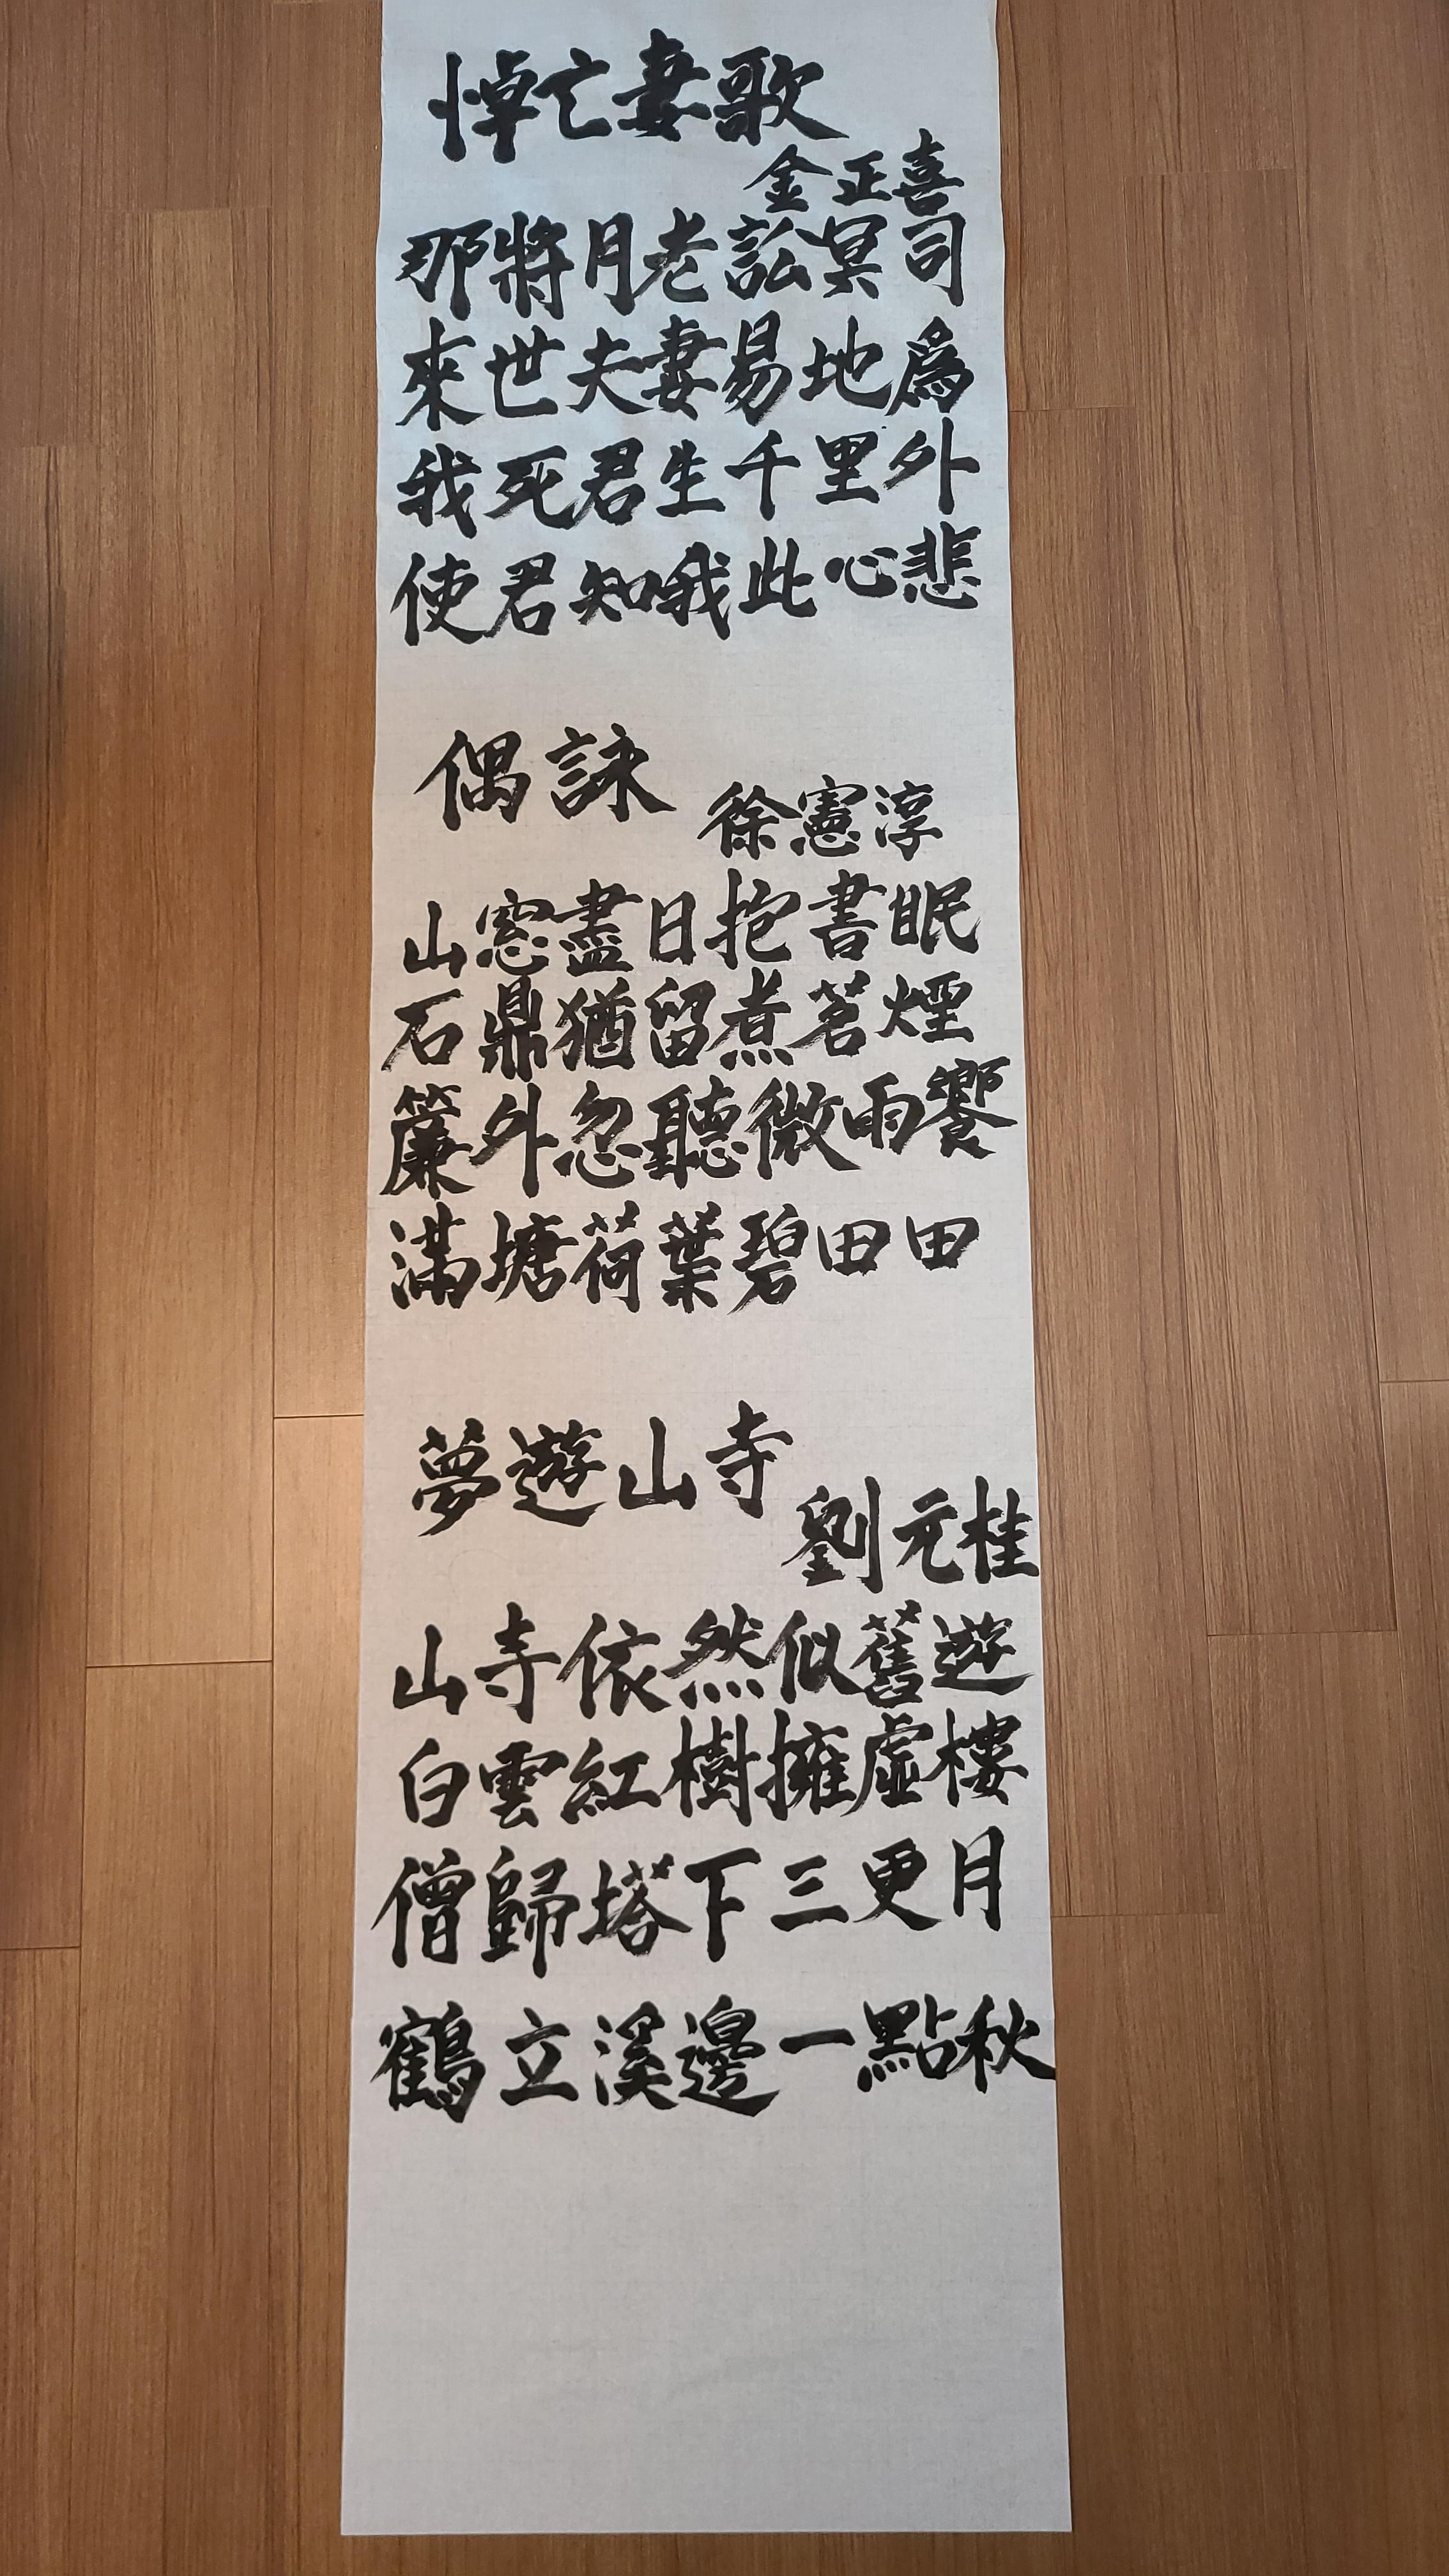 悼亡妻歌
金正喜
那將月老訟冥司
來世夫妻易地爲
我死君生千里外
使君知我此心悲
偶詠
徐憲淳
山窓盡日抱書眠
石鼎猶留煮茗煙
簾外忽聽微雨饗
滿塘荷葉碧田田
夢遊山寺
劉元桂
山寺依然似舊遊
白雲紅樹擁虛樓
僧歸塔下三更月
鶴立溪邊一點秋